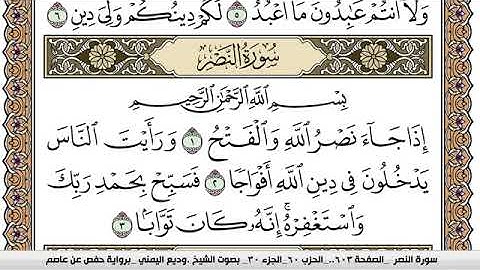 وَلَآ أَنتُمْ عَٰبِدُونَ مَآ أَعْبُدُ ٥ لَكُمْ دِينُكُمْ وَلِىَ دِينِ ٦
سُورَةُ النَّصْرِ
بِسْمِ اللَّهِ الرَّحْمَٰنِ الرَّحِيمِ
إِذَا جَآءَ نَصْرُ اللَّهِ وَالْفَتْحُ ١ وَرَأَيْتَ النَّاسَ
يَدْخُلُونَ فِى دِينِ اللَّهِ أَفْوَاجًا ٢ فَسَبِّحْ بِحَمْدِ رَبِّكَ
وَاسْتَغْفِرْهُ ۚ إِنَّهُۥ كَانَ تَوَّابًۢا ٣
سورة النصر _الصفحة ٦٠٣.. _الحزب ٦٠ _الجزء ٣٠_ بصوت الشيخ .وديع اليمني _برواية حفص عن عاصم